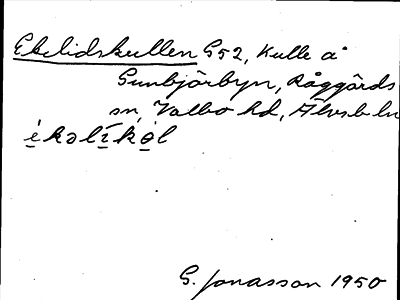 Ekelidskullen G52, Kulle å
Gunbjörbyn, Råggärds
sn, Valbo hd, Älvsb ln
ekəlikəl
G. Jonasson 1950